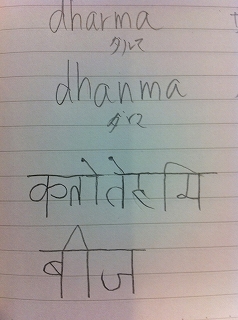 dharma
ダルマ
dhanma
ダンマ
बीज